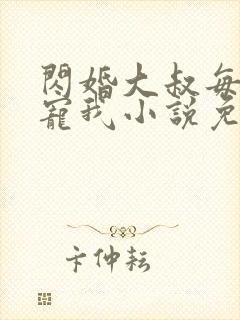 閃婚大叔每
寵我小說免
卞仲耘